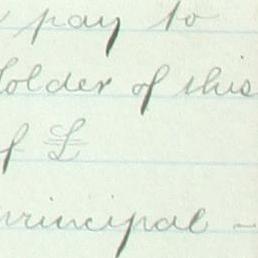 pay to
holder of this
of £
principal -